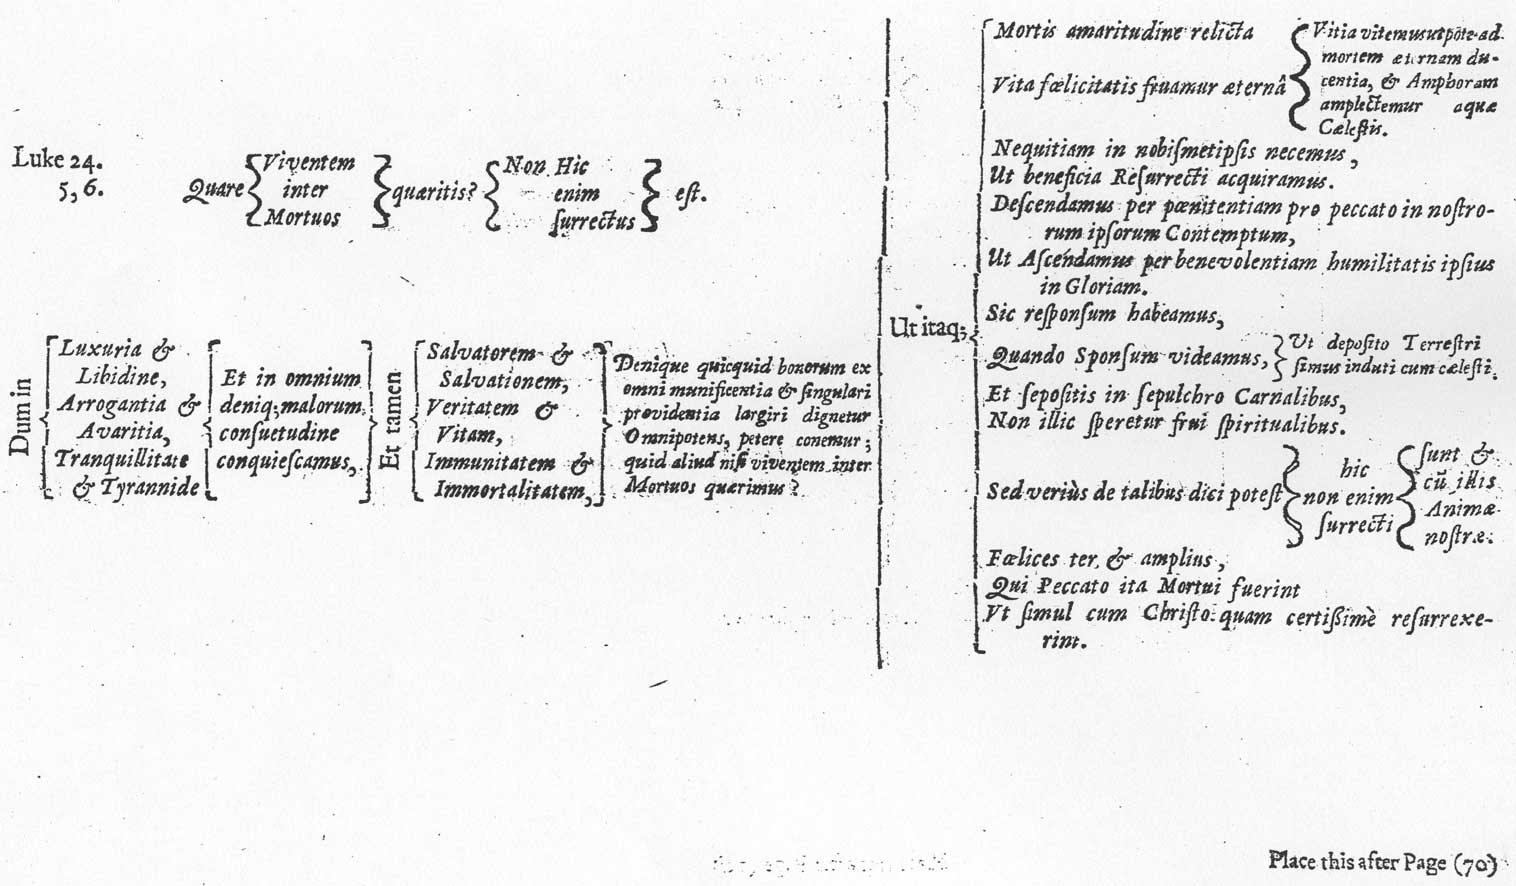 Luke 24.
5, 6.
Quare
Viventem
inter
Mortuos
quæritis?
Non Hic
enim
ſurrectus
eſt.
Dum in
Luxuria &
Libidine,
Arrogantia &
Avaritia,
Tranquillitate
& Tyrannide
Et in omnium
deniq; malorum,
conſuetudine
conquieſcamus,
Et tamen
Salvatorem &
Salvationem,
Veritatem &
Vitam,
Immunitatem &
Immortalitatem,
Denique quicquid bonorum ex
omni munificentia & ſingulari
providentia largiri dignetur
Omnipotens, petere conemur;
quid aliud niſi viventem inter
Mortuos quærimus?
Ut itaq;
Mortis amaritudine relicta
Vita fœlicitatis fruamur æternâ
Vitia vitemus utpote ad
mortem æternam du-
centia, & Amphoram
amplectemur aquæ
Cæleſtis.
Nequitiam in nobiſmetipſis necemus,
Ut beneficia Reſurrecti acquiramus.
Deſcendamus per pœnitentiam pro peccato in noſtro-
rum ipſorum Contemptum,
Ut Aſcendamus per benevolentiam humilitatis ipſius
in Gloriam.
Sic reſponſum habeamus,
Quando Sponſum videamus,
Ut depoſito Terreſtri
ſimus induti cum cæleſti.
Et ſepoſitis in ſepulchro Carnalibus,
Non illic ſperetur frui ſpiritualibus.
Sed veriùs de talibus dici poteſt
hic
non enim
ſurrecti
ſunt &
cū illis
Animæ
noſtræ.
Fœlices ter, & amplius,
Qui Peccato ita Mortui fuerint
Vt ſimul cum Chriſto quam certiſſimè reſurrexe-
rint.
Place this after Page (70)